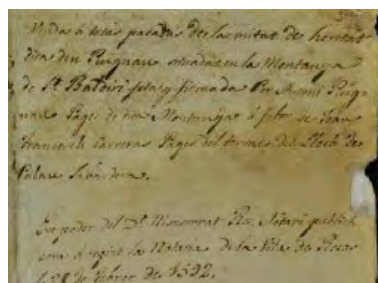 Venda á totas pasadas de la mitat de heretat
dita den Puignau situada en la Montanya
de St. Baldiri feta y firmada Per Antoni Puig-
nau Pages de dita Montanya á favor de Joan
Francisch Carreras Pages del terme del Lloch de
Palau Sabardera.
En poder del Dr. Monserrat Notari publich
com á regint la Notaria de la Vila de Roses
de Febrer de 1592.